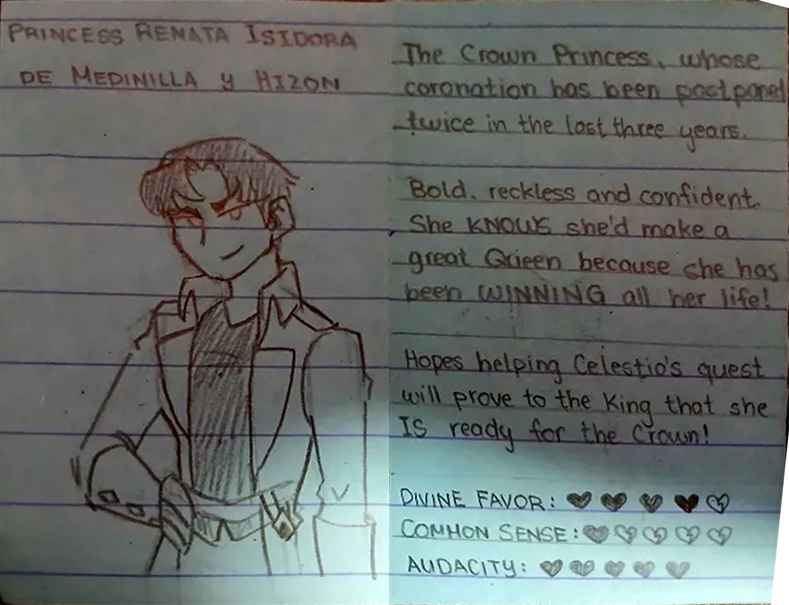 PRINCESS RENATA ISIDORA
DE MEDINILLA Y HIZON
The Crown Princess, whose
coronation has been postponed
twice in the last three years.
Bold, reckless and confident.
She KNOWS she'd make a
great Queen because she has
been WINNING all her life!
Hopes helping Celestio's quest
will prove to the King that she
IS ready for the Crown!
DIVINE FAVOR:
COMMON SENSE:
AUDACITY: